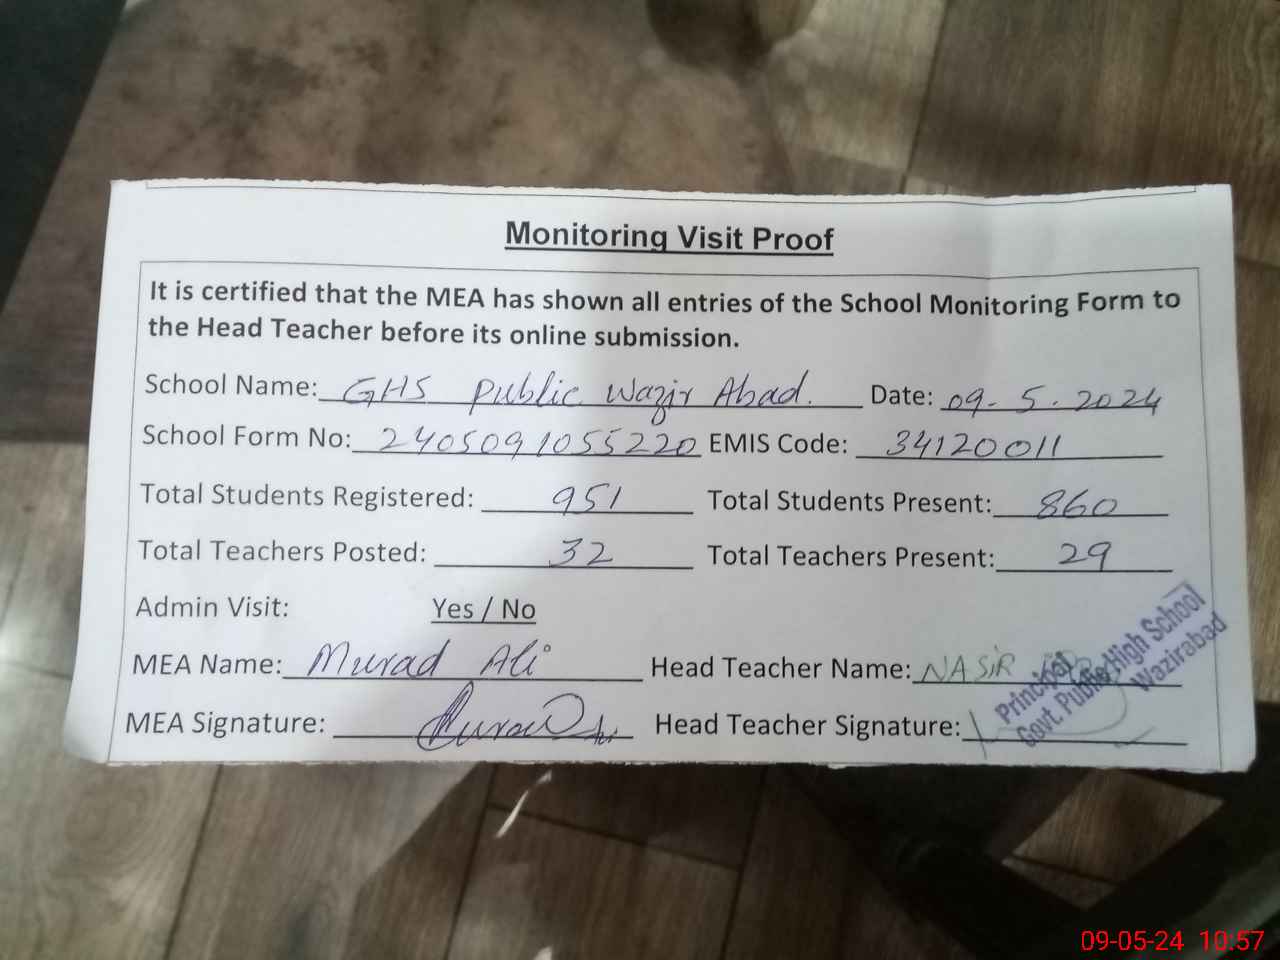 Monitoring Visit Proof
It is certified that the MEA has shown all entries of the School Monitoring Form to
the Head Teacher before its online submission.
School Name: GHS Public Wazir Abad. Date: 09-5.2024
School Form No: 2405091055220 EMIS Code: 34120011
Total Students Registered: 951 Total Students Present: 860
Total Teachers Posted: 32 Total Teachers Present: 29
Admin Visit: Yes / No
MEA Name: Murad Ali Head Teacher Name: NASIR
MEA Signature: Head Teacher Signature:
Principal
Govt. Public High School
Wazirabad
09-05-24 10:57